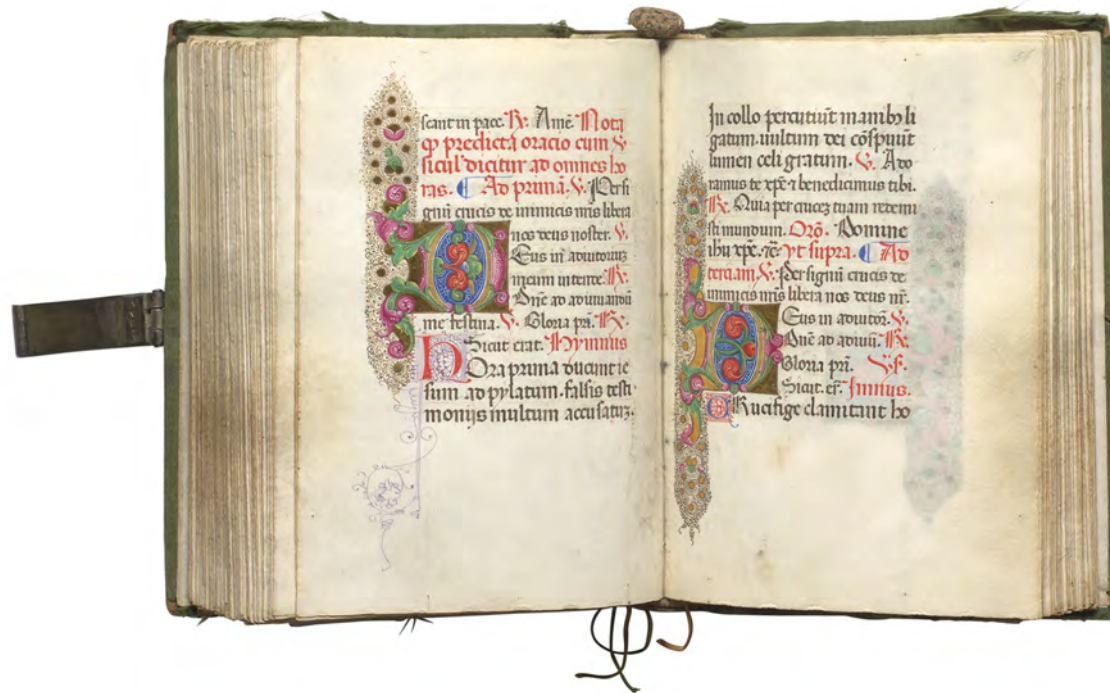 scant in pace. ℟. Amē. Nota
ꝙ predicta oracio cum ℣
sicul̓ dicitur ad omnes ho
ras. ¶ Ad primā. ℣. Per si
gnū crucis de inimicis nr̄is libera
nos deus noster. ℣.
Eus in adiutoriuꝫ
meum intende. ℟.
Dn̄e ad adiuuandū
me festina. ℣. Gloria pri. ℟.
Sicut erat. Hymnus
HOra prima ducunt ie
sum ad pylatum. falsis testi
monijs multum accusatuꝫ.
In collo percutiūt manibꝫ li
gatum. uultum dei cōspuūt
lumen celi gratum. ℣. Ado
ramus te xp̄e ⁊ benedicimus tibi.
℟. Quia per cruceꝫ tuam redemi
sti mundum. Orō. Domine
ihu xp̄e. ⁊c̄. vt supra. ¶ Ad
terciam ℣. Per signū crucis de
inimicis nr̄is libera nos deus nr̄.
DEus in adiutor̄. ℣.
Dn̄e ad adiuū. ℟.
Gloria pri. ℣s.
Sicut. er̄. Imnus.
CRucifige clamitant ho